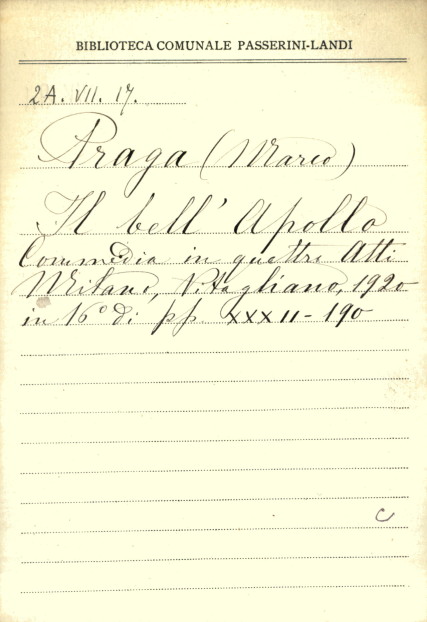 BIBLIOTECA COMUNALE PASSERINI-LANDI
2A. VII. 17.
Praga (Marco)
Il bell' Apollo
Commedia in quattro Atti
Milano, Vitagliano, 1920
in 16° di pp XXXII-190
C